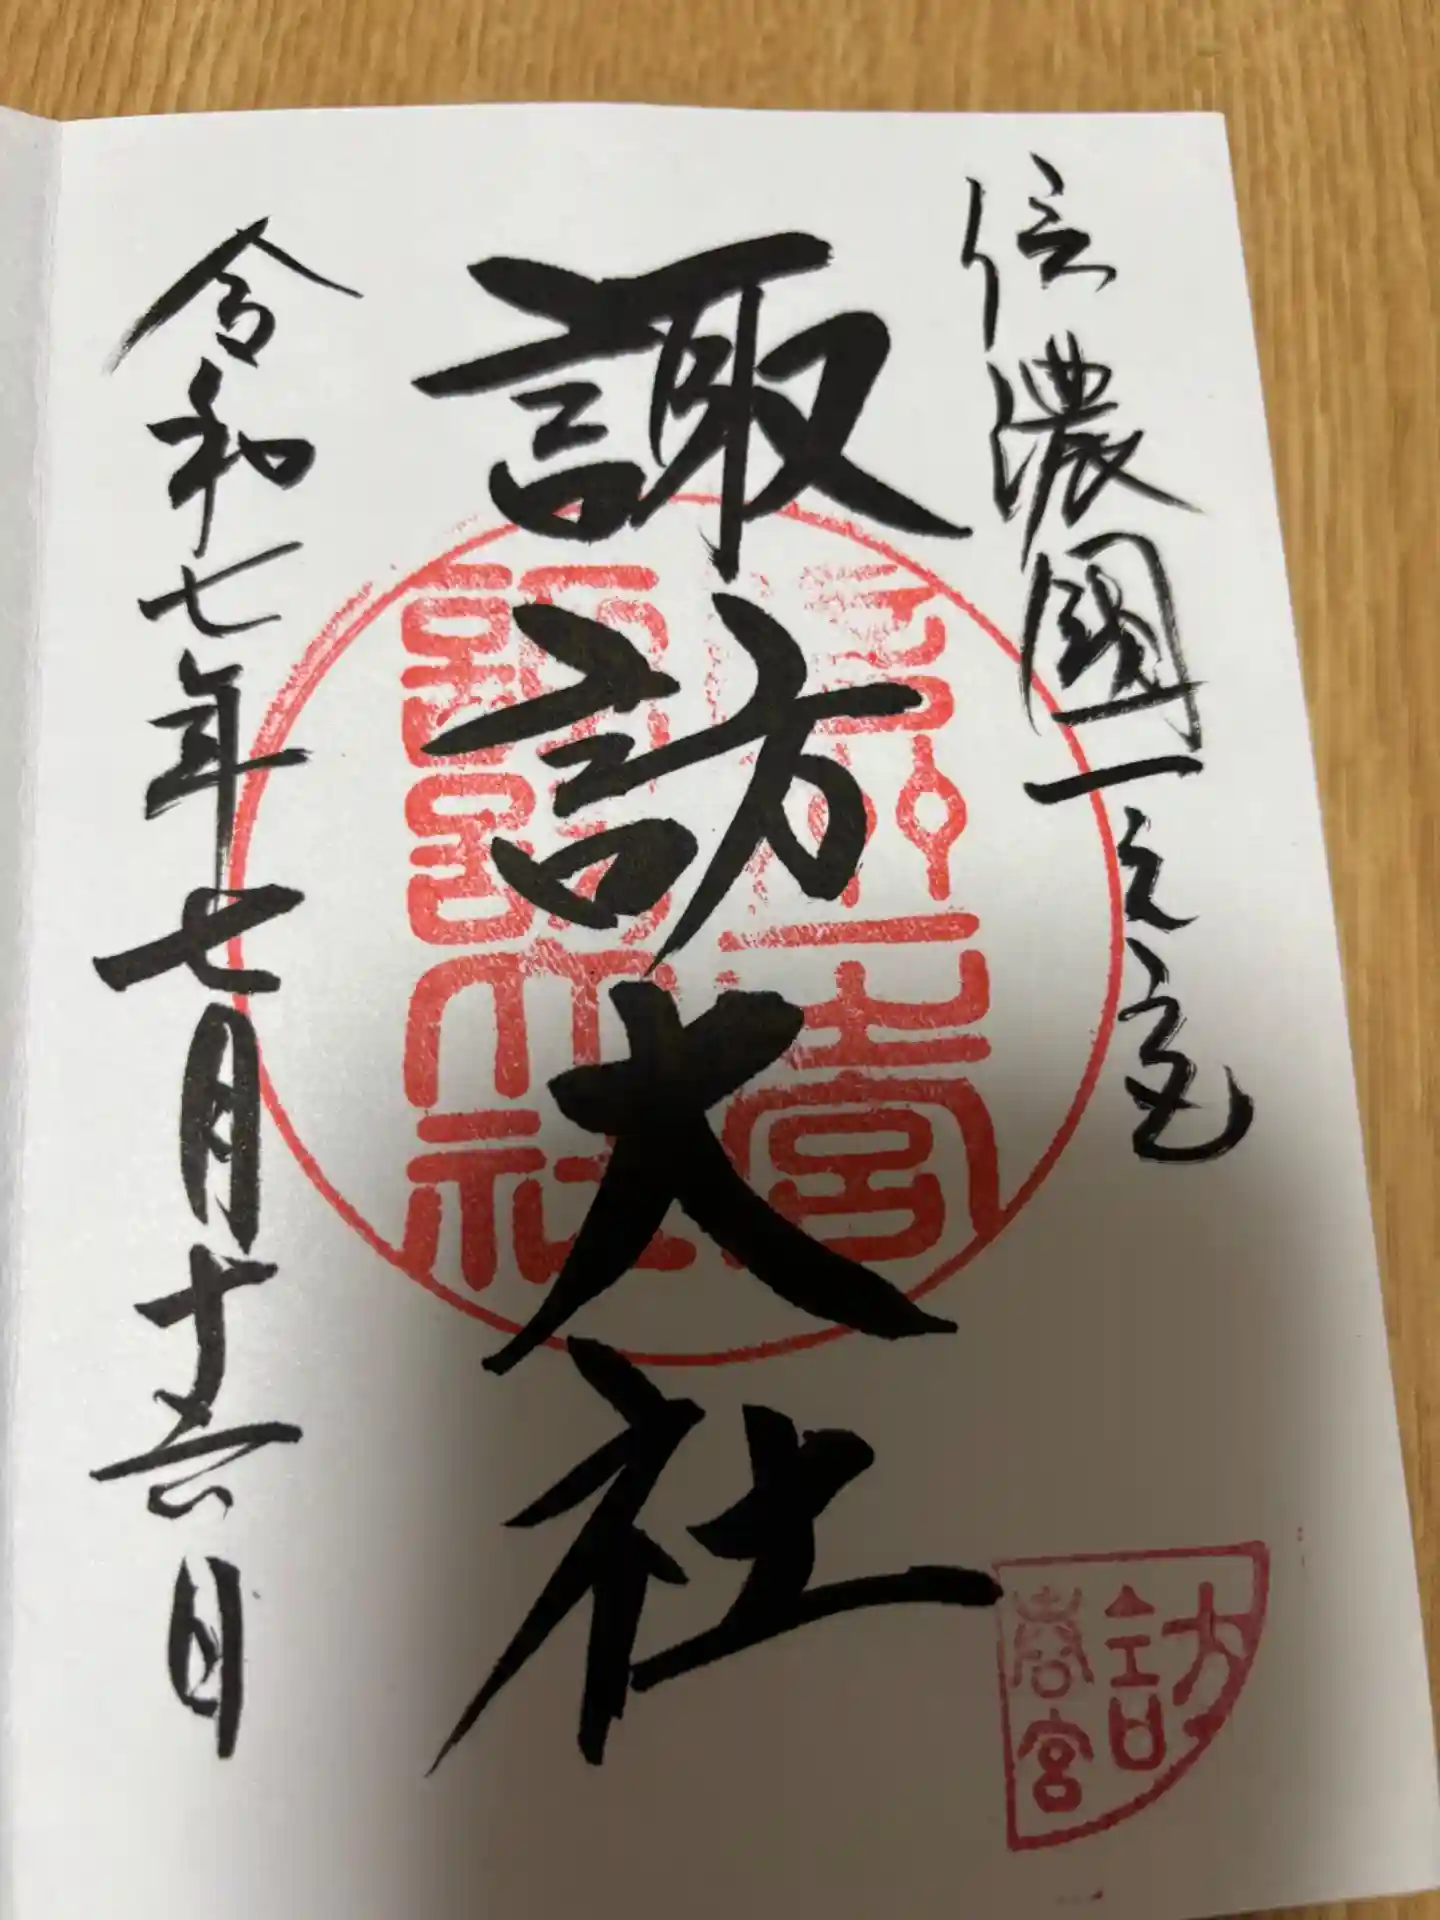 信濃國一之宮
諏訪大社
令和七年七月十六日
信州一之宮
諏訪大社
訪
春宮